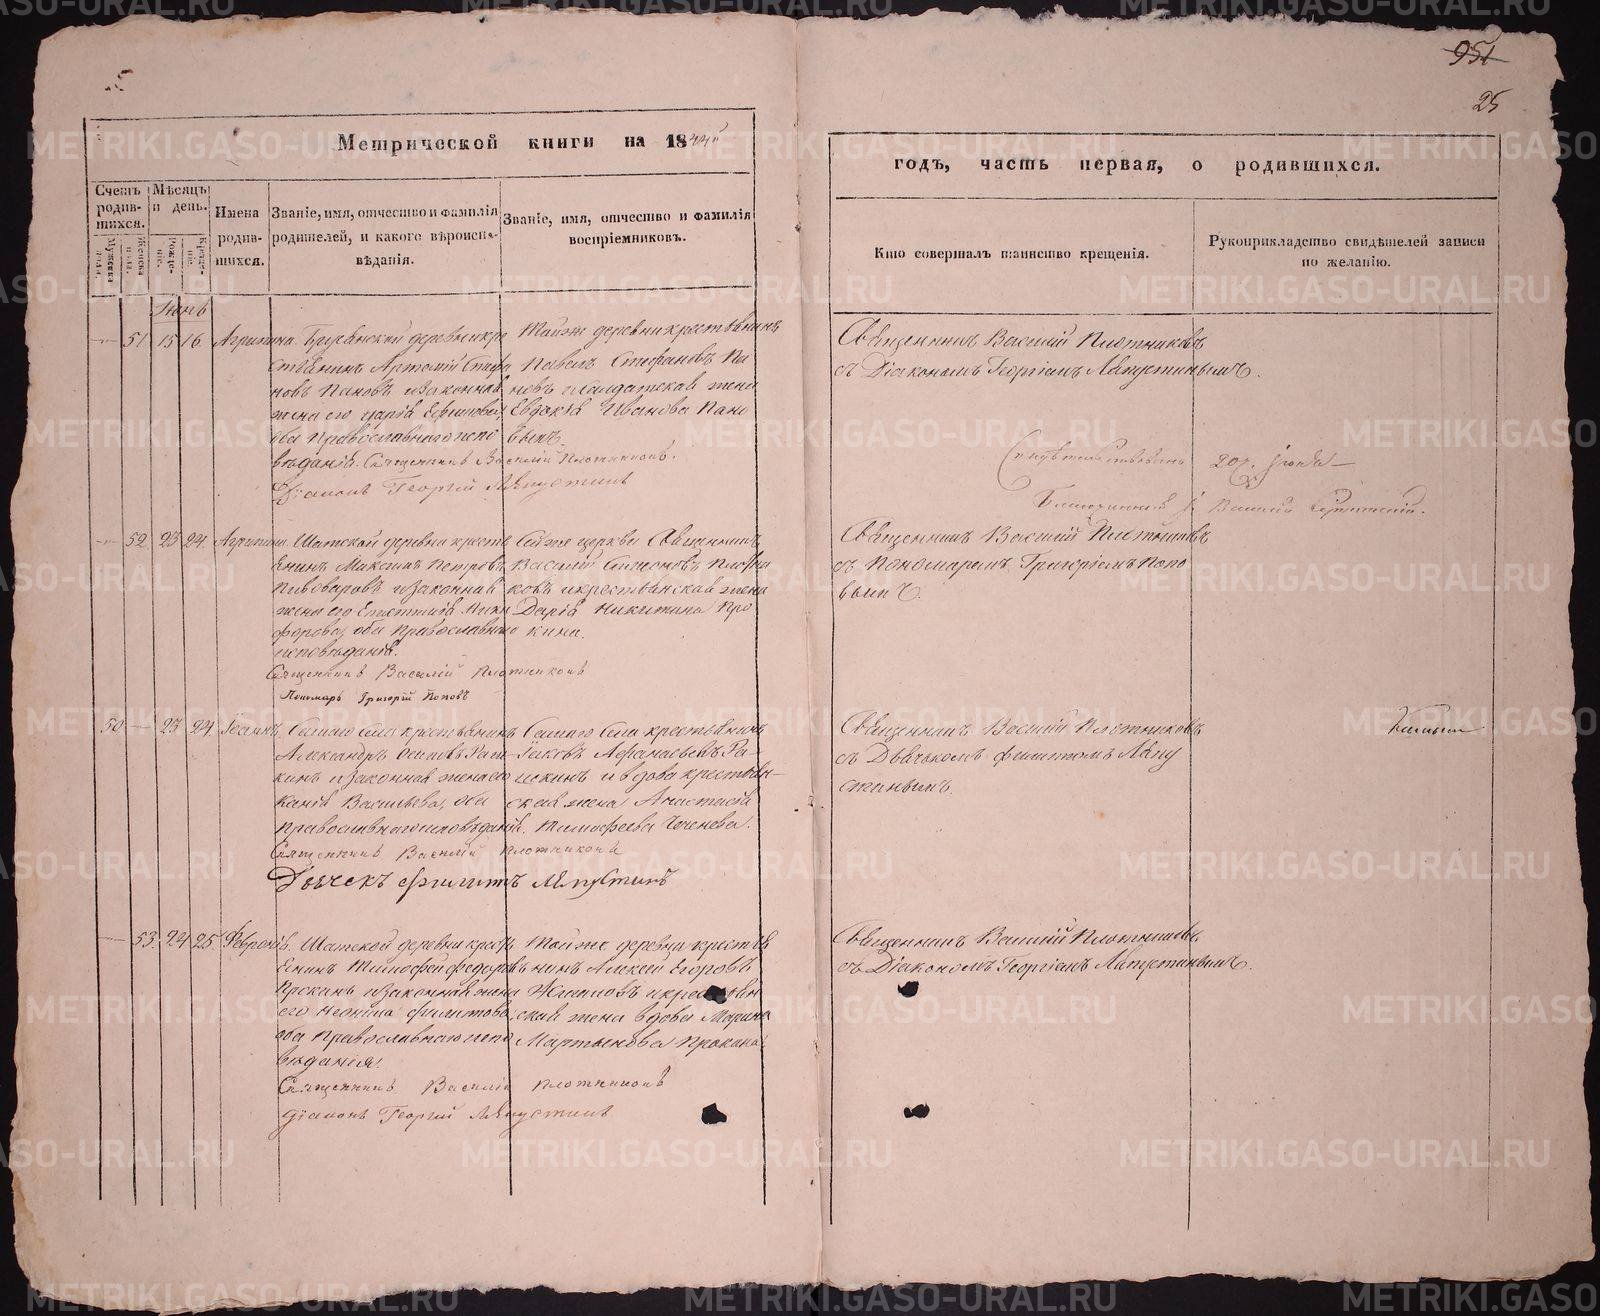 951
25
Метрической книги на 1844й
годъ, часть первая, о родившихся.
Счетъ родившихся.
Мужеска пола.
Женска пола.
Мѣсяцъ и день.
Рожденіе.
Крещеніе.
Имена родившихся.
Званіе, имя, отчество и фамилія родителей, и какого вѣроисповѣданія.
Званіе, имя, отчество и фамилія воспріемниковъ.
Кто совершалъ таинство крещенія.
Рукоприкладство свидѣтелей записи по желанію.
Іюнь
51 15 16 Агрипина
деревни кре
стьянинъ Артемій Стефа
новъ Пановъ и законная
жена его Ефимова,
оба православнаго испо
вѣданія. Священникъ Василій Плотниковъ.
Діаконъ Георгій Лапустинъ
Тойже деревни крестьянинъ
Павелъ Стефановъ Па
новъ и солдатская жена
Евдокія Иванова Пано
выхъ.
Священникъ Василій Плотниковъ
съ Діакономъ Георгіемъ Лапустинымъ.
Свидѣтельствовалъ 20го. Іюня
Благочинный Василій
52 23 24 Агрипина
Шатской деревни кресть
янинъ Максимъ Петровъ
Пивоваровъ и законная
жена его Ники
форова, оба православнаго
исповѣданія.
Священникъ Василій Плотниковъ
Пономарь Григорій Поповъ
Сейже церкви Священникъ
Василій Симоновъ Плотни
ковъ и крестьянская жена
Дарія Никитина Про
кина.
Священникъ Василій Плотниковъ
съ Пономаремъ Григоріемъ Попо
вымъ.
50 23 24 Іоаннъ
Самаго села крестьянинъ
Александръ Осиповъ
и законная жена его
Васильева, оба
православнаго исповѣданія.
Священникъ Василій Плотниковъ
Дьячекъ Филиппъ Лапустинъ
Самаго села крестьянинъ
Іаковъ Афанасьевъ
и вдова крестьян-
ская жена Анастасія
Тимофеева Чеченева.
Священникъ Василій Плотниковъ
съ Дьячкомъ Филиппомъ Лапу
стинымъ.
53 24 25 Февронія
Шатской деревни кресть
янинъ Тимофей Федоровъ
Прокинъ и законная жена
его Филиппова,
оба православнаго испо
вѣданія.
Священникъ Василій Плотниковъ
Діаконъ Георгій Лапустинъ
Тойже деревни крестья
нинъ Алексей Егоровъ
и крестьян
ская жена вдова Марина
Мартынова Прокина.
Священникъ Василій Плотниковъ
съ Діакономъ Георгіемъ Лапустинымъ.
METRIKI.GASO-URAL.RU